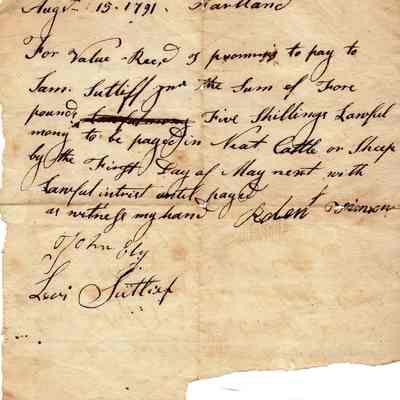 Augst 15. 1791. Hartland
For Value Rec,d I promis to pay to
Sam. Sutliff Jnr the Sum of Fore
pounds Five Shillings Lawful
money to be payed in Neat Cattle or Sheep
by the First Day of May next with
Lawful intrest until payed
as witness my hand
John Ely
Levi Sutlief